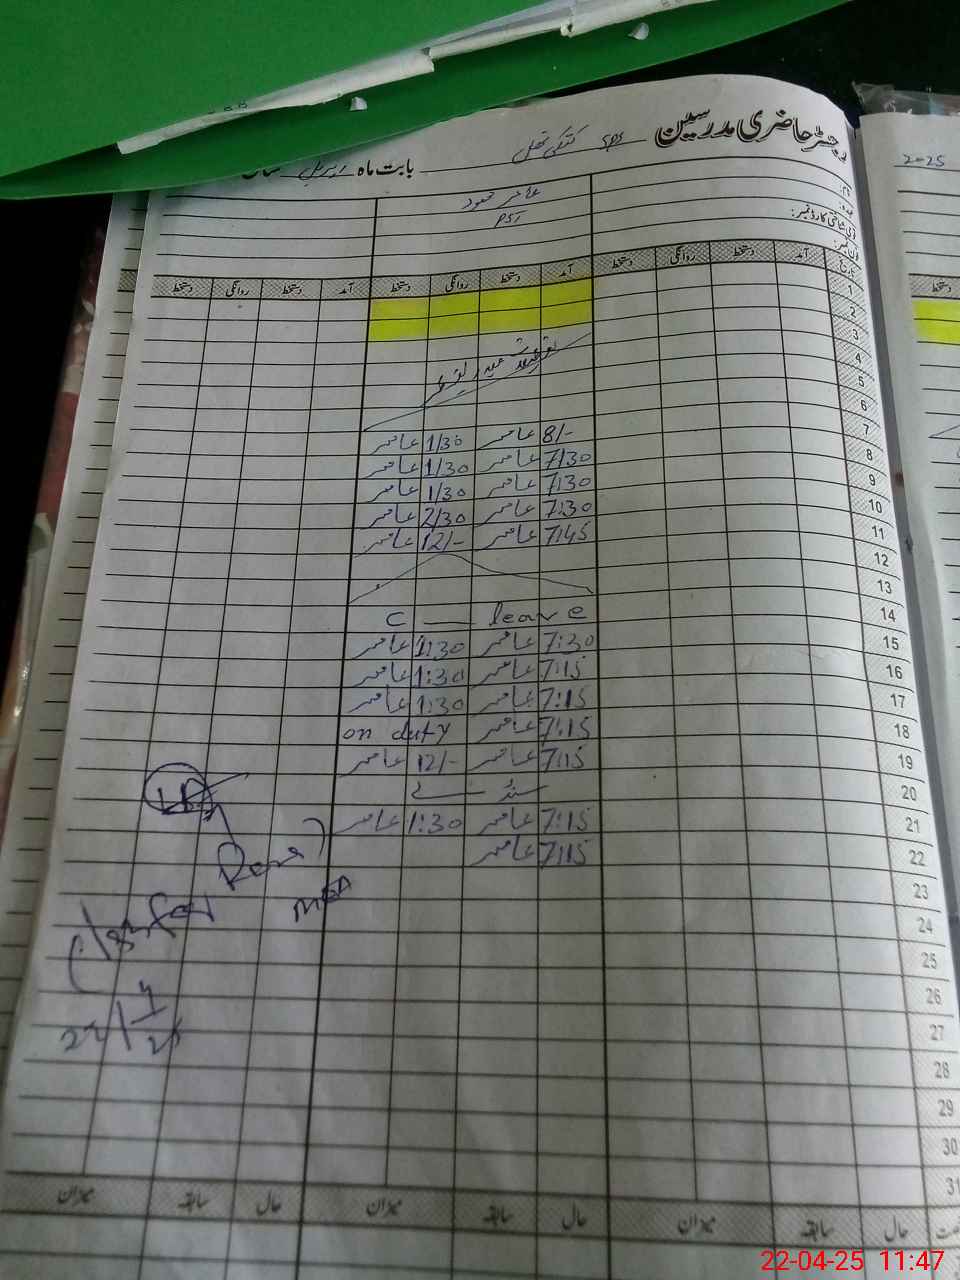 رجسٹر حاضری مدرسین GPS
بابت ماہ اپریل
2025
نام:
عہدہ: PST
قومی شناختی کارڈ نمبر:
فون نمبر:
تاریخ آمد دستخط روانگی دستخط آمد دستخط روانگی دستخط آمد دستخط روانگی دستخط
1
2
3
4
5
6
7 8/- عامر 1/30 عامر
8 7/30 عامر 1/30 عامر
9 7:30 عامر 1/30 عامر
10 7:30 عامر 2/30 عامر
11 7:45 عامر 12/- عامر
12
13
14 C leave
15 7:30 عامر 1:30 عامر
16 7:15 عامر 1:30 عامر
17 7:15 عامر 1:30 عامر
18 7:15 عامر on duty
19 7:15 عامر 12/- عامر
20 سنڈے
21 7:15 عامر 1:30 عامر
22 7:15 عامر
23
24
25
26
27
28
29
30
31
MEA
22/4/25
حال سابقہ میزان حال سابقہ میزان حال سابقہ میزان
22-04-25 11:47